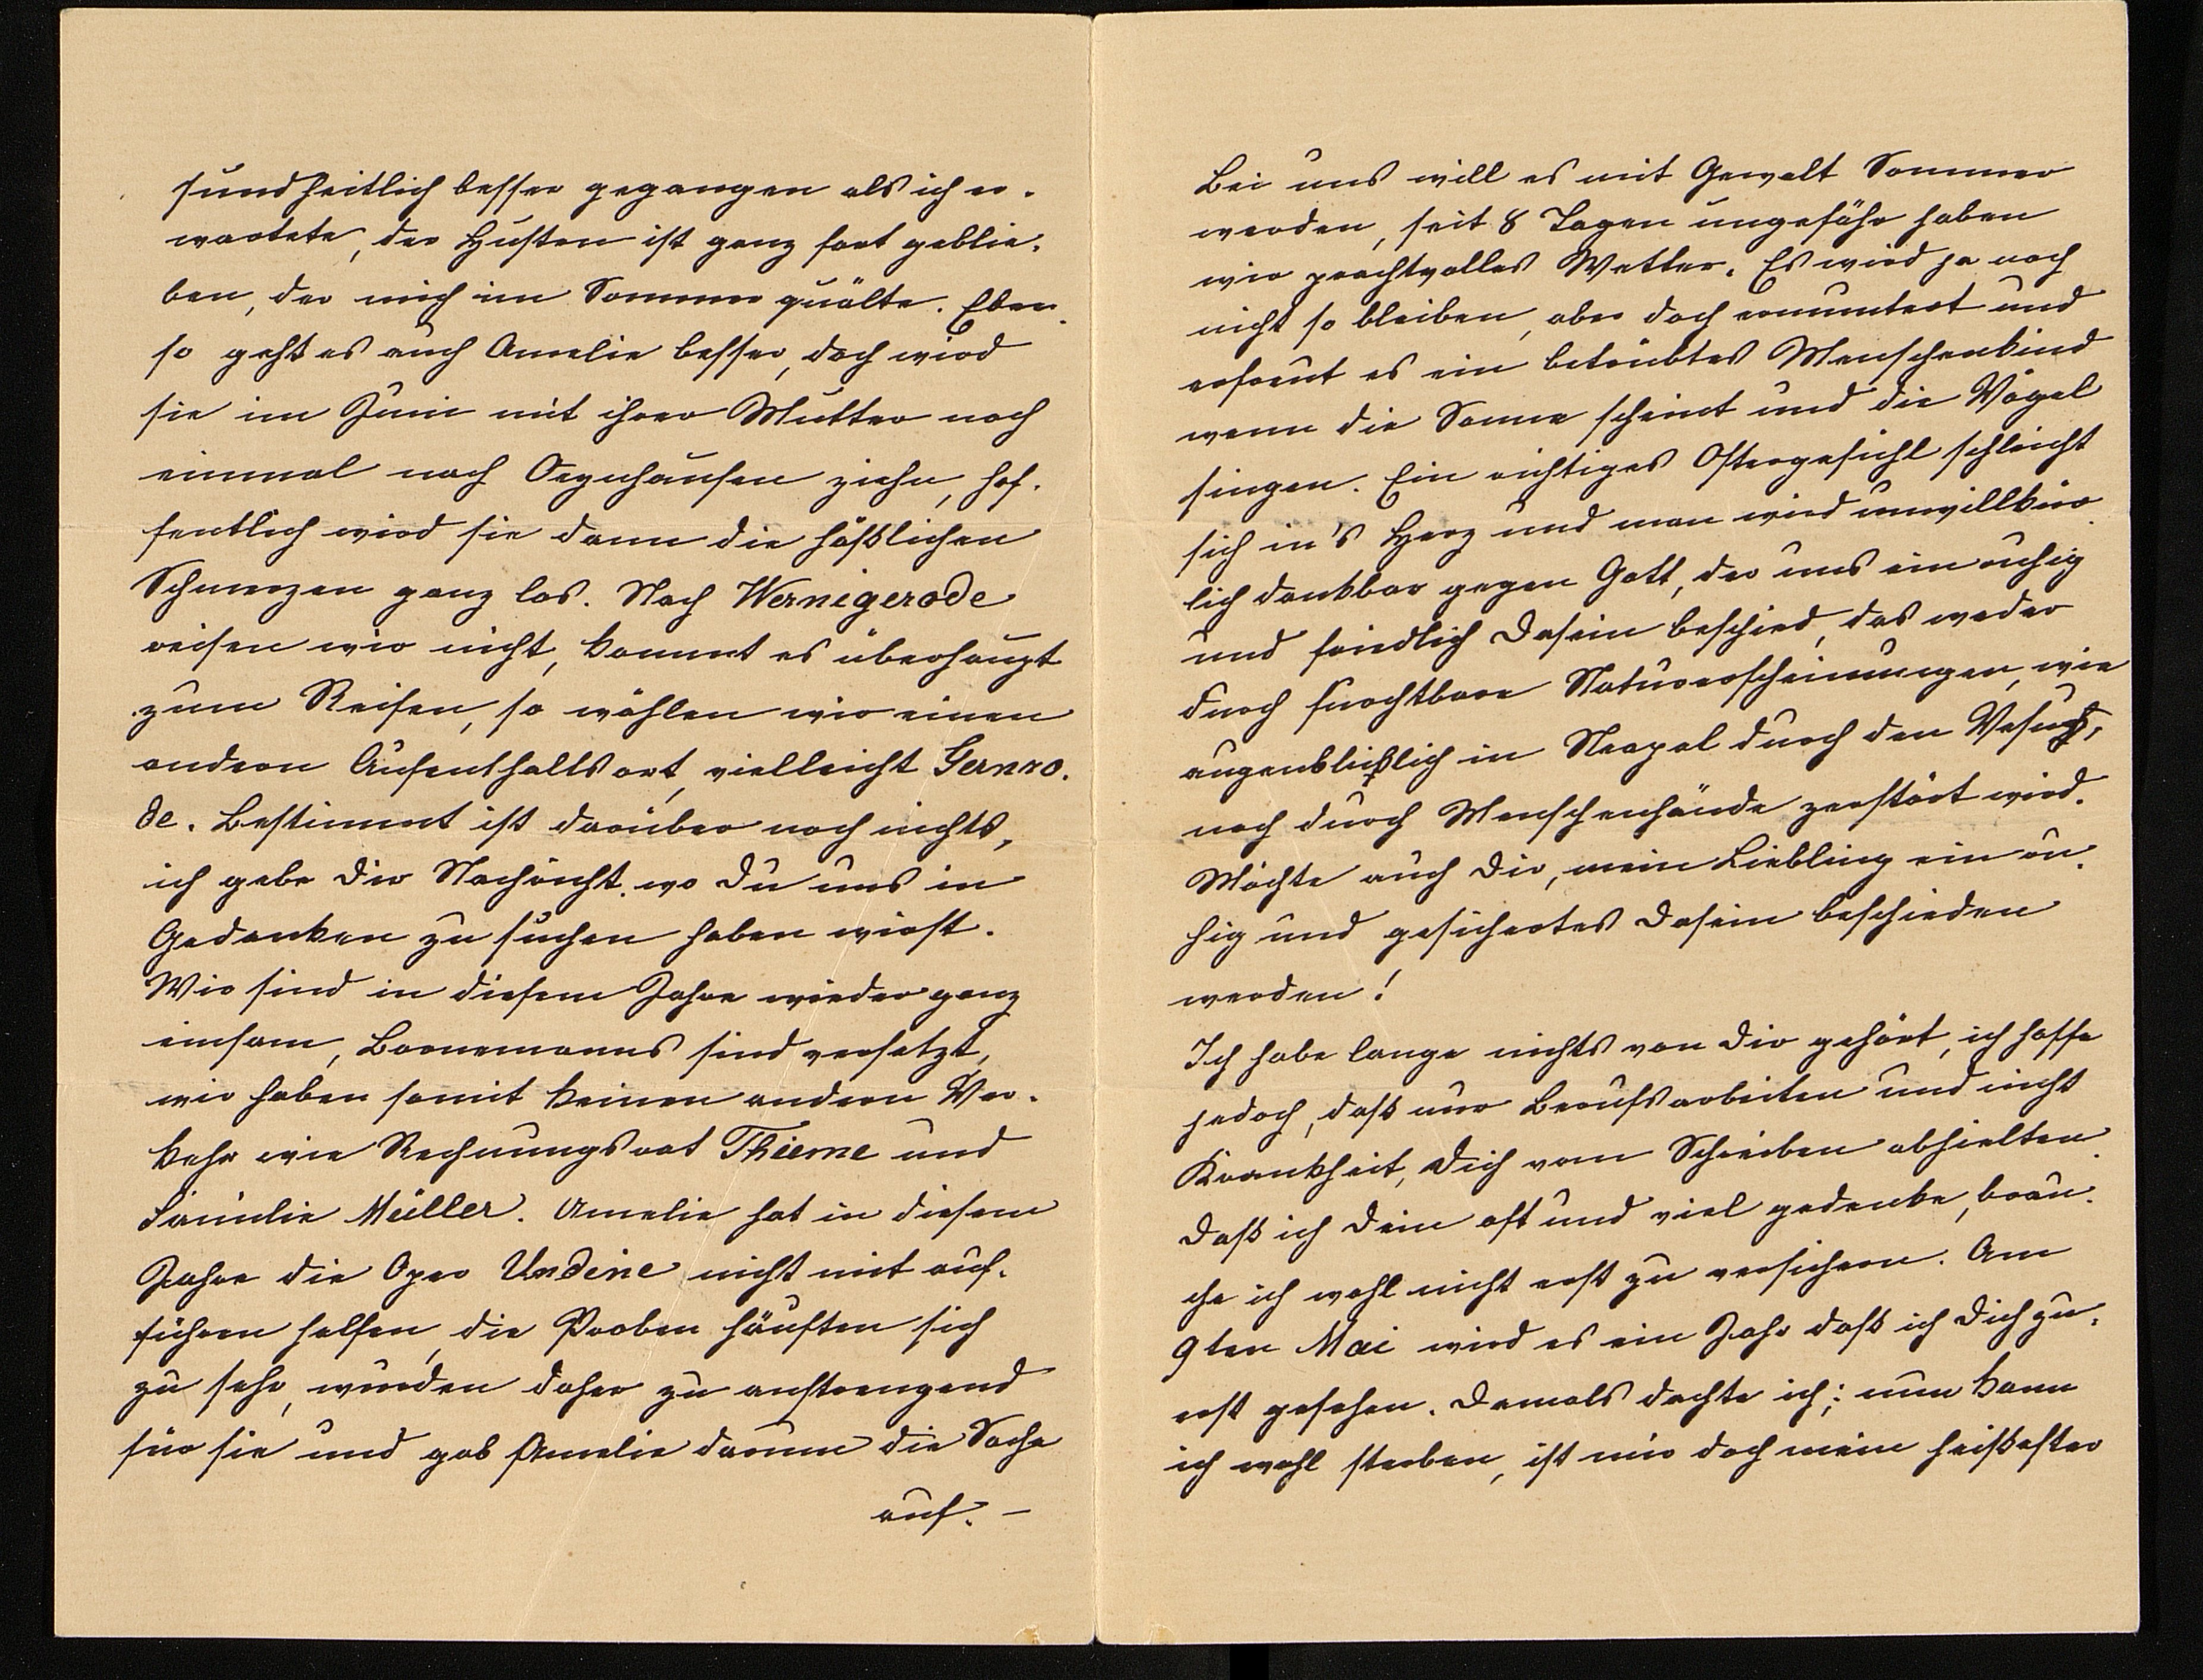 sundheitlich besser gegangen als ich er-
wartete, der Husten ist ganz fort geblie-
ben, der mich im Sommer quälte. Eben-
so geht es auch Amelie besser, doch wird
sie im Juni mit ihrer Mutter noch
einmal nach Oeynhausen ziehn, hof-
fentlich wird sie dann die häßlichen
Schmerzen ganz los. Nach Wernigerode
reisen wir nicht, kommt es überhaupt
zum Reisen, so wählen wir einen
andern Aufenthaltsort, vielleicht Gernro-
de. Bestimmt ist darüber noch nichts,
ich gebe Dir Nachricht, wo Du uns in
Gedanken zu suchen haben wirst.
Wir sind in diesem Jahre wieder ganz
einsam, Bornemanns sind versetzt,
wir haben somit keinen andern Ver-
kehr wie Rechnungsrat Thieme und
Familie Müller. Amelie hat in diesem
Jahre die Oper Undine nicht mit auf-
führen helfen, die Proben häuften sich
zu sehr, wurden daher zu anstrengend
für sie und gab Amelie darum die Sache
auf. –
Bei uns will es mit Gewalt Sommer
werden, seit 8 Tagen ungefähr haben
wir prachtvolles Wetter. Es wird ja noch
nicht so bleiben, aber doch ermuntert und
erfreut es ein betrübtes Menschenkind
wenn die Sonne scheint und die Vögel
singen. Ein richtiges Ostergefühl schleicht
sich in's Herz und man wird unwillkür-
lich dankbar gegen Gott, der uns ein ruhig
und friedlich Dasein beschied, das weder
durch furchtbare Naturerscheinungen, wie
augenblicklich in Neapel durch den Vesuv,
noch durch Menschenhände zerstört wird.
Möchte auch Dir, mein Liebling ein ru-
hig und gesichertes Dasein beschieden
werden!
Ich habe lange nichts von Dir gehört, ich hoffe
jedoch, daß nur Berufsarbeiten und nicht
Krankheit, Dich vom Schreiben abhielten.
Daß ich Dein oft und viel gedenke, brau-
che ich wohl nicht erst zu versichern. Am
9ten Mai wird es ein Jahr daß ich Dich zu-
erst gesehen. Damals dachte ich; nun kann
ich wohl sterben, ist mir doch mein heißester